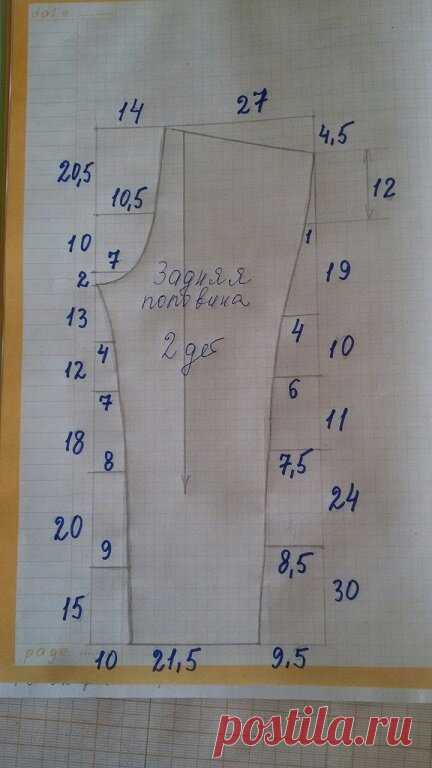 date
14
27
4,5
20,5
12
10,5
10
7
1
2
19
Задняя
половина
13
4
2 дет
4
10
12
7
6
11
18
8
7,5
24
20
9
8,5
30
15
page
10
21,5
9,5
postila.ru